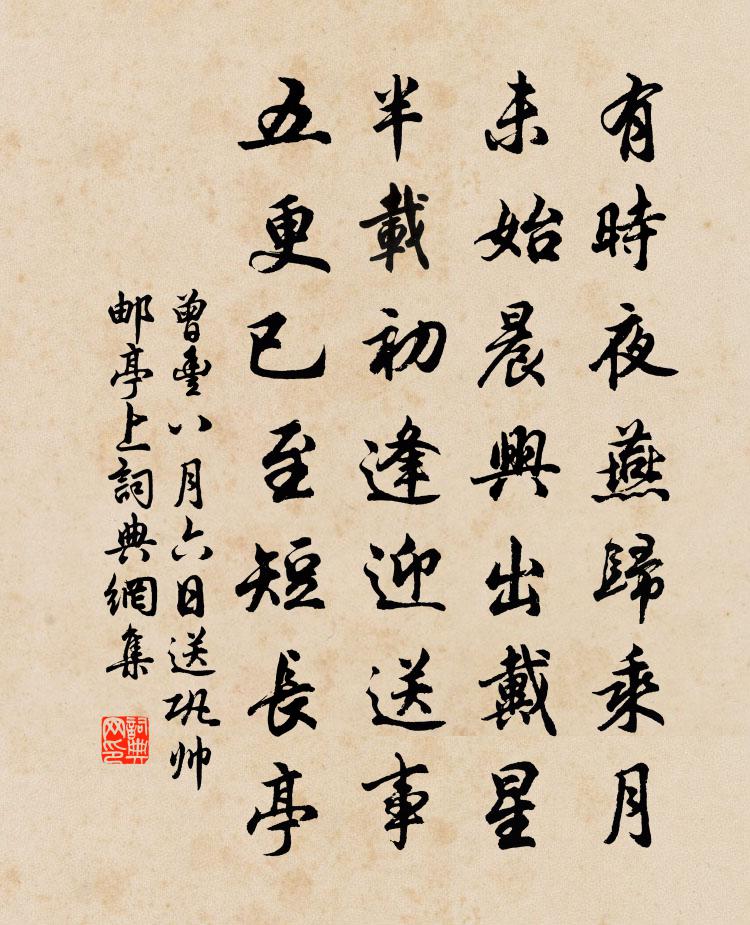 有時夜燕歸乘月
未始晨興出戴星
半載初逢迎送事
五更已至短長亭
曾豐八月六日送巩帅
邮亭上詞典網集
詞典网印